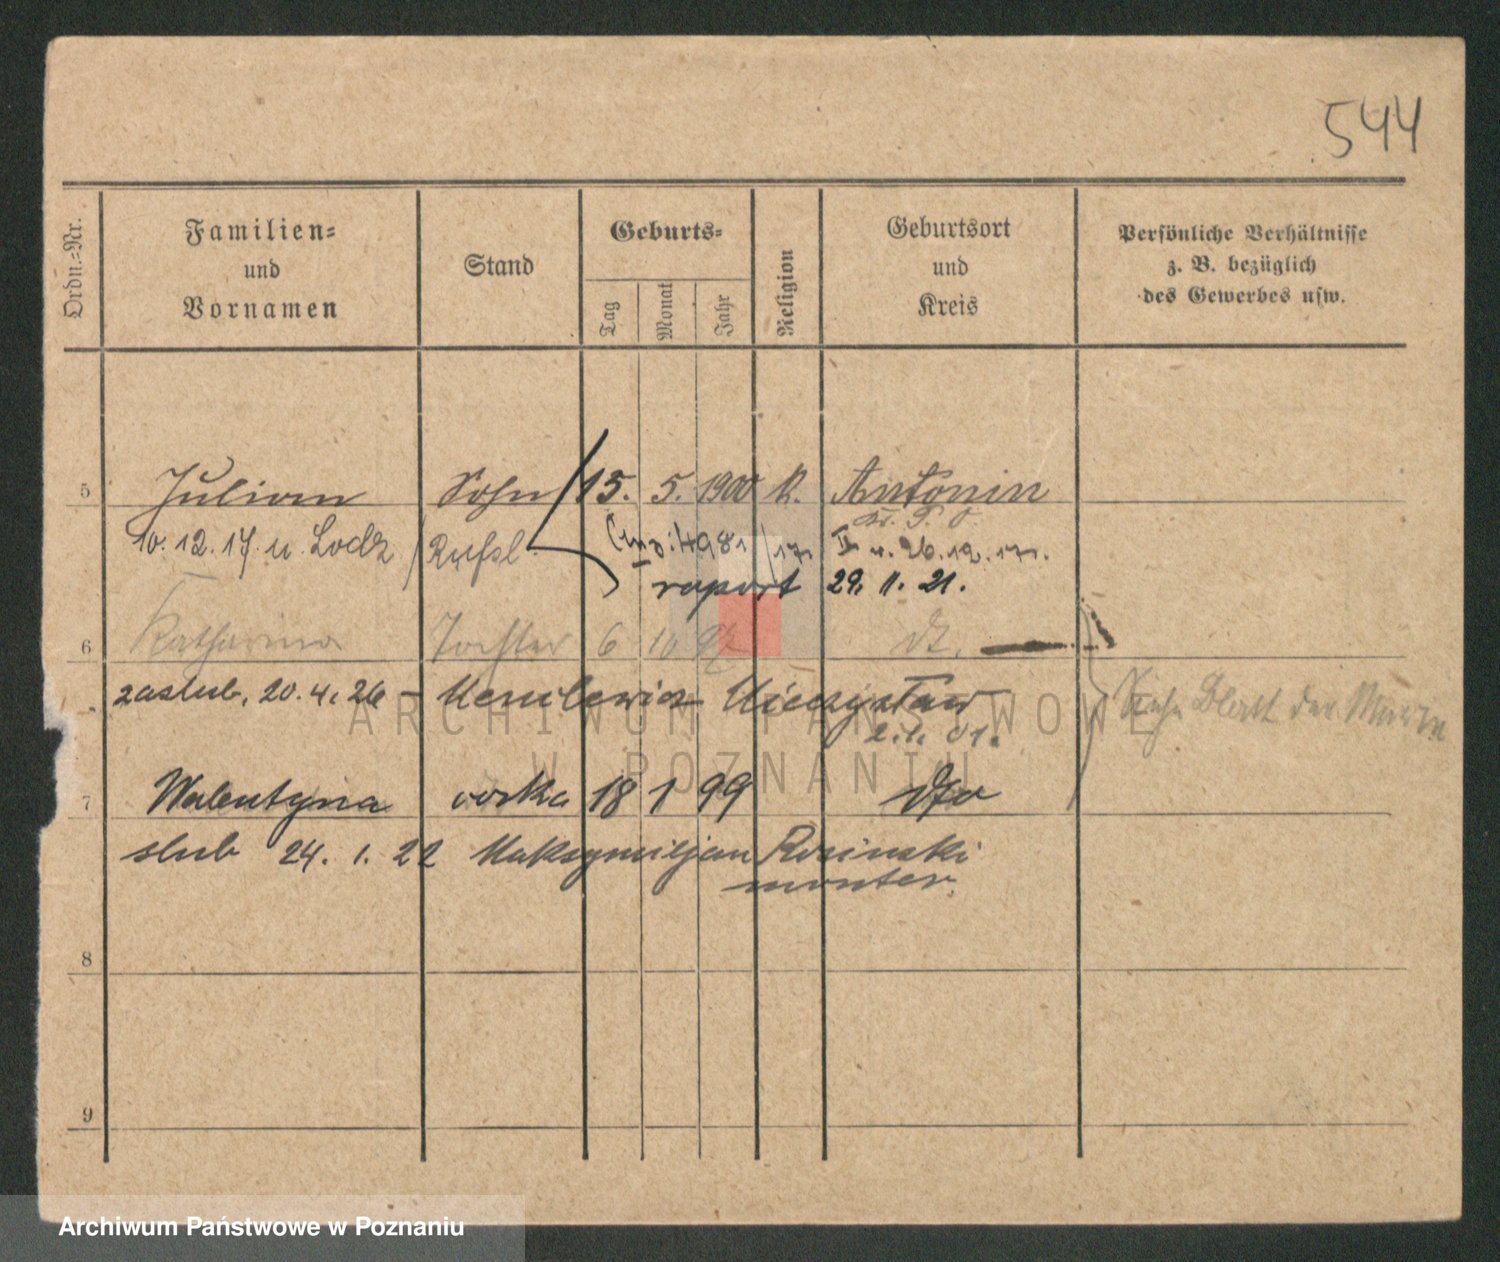 544
Ordn.-Nr.
Familien- und Vornamen
Stand
Geburts-
Tag
Monat
Jahr
Religion
Geburtsort und Kreis
Persönliche Verhältnisse z. B. bezüglich des Gewerbes usw.
5 Julian Sohn 15. 5. 1900 k. Antonin
Kr. P. O.
10. 12. 17. u. Lodz / Rußl
4981/17 II v. 26.12.17.
raport 29. 11. 21.
6 Katharina Tochter 6 10 dt.
zaślub. 20. 4. 26 - Mieczysław
2.1.01.
Siehe Blatt der
7 Walentyna córka 18 1 99 dto
ślub 24. 1. 22 Maksymiljan Rosinski
monter.
8
9
ARCHIWUM PAŃSTWOWE
W POZNANIU
Archiwum Państwowe w Poznaniu